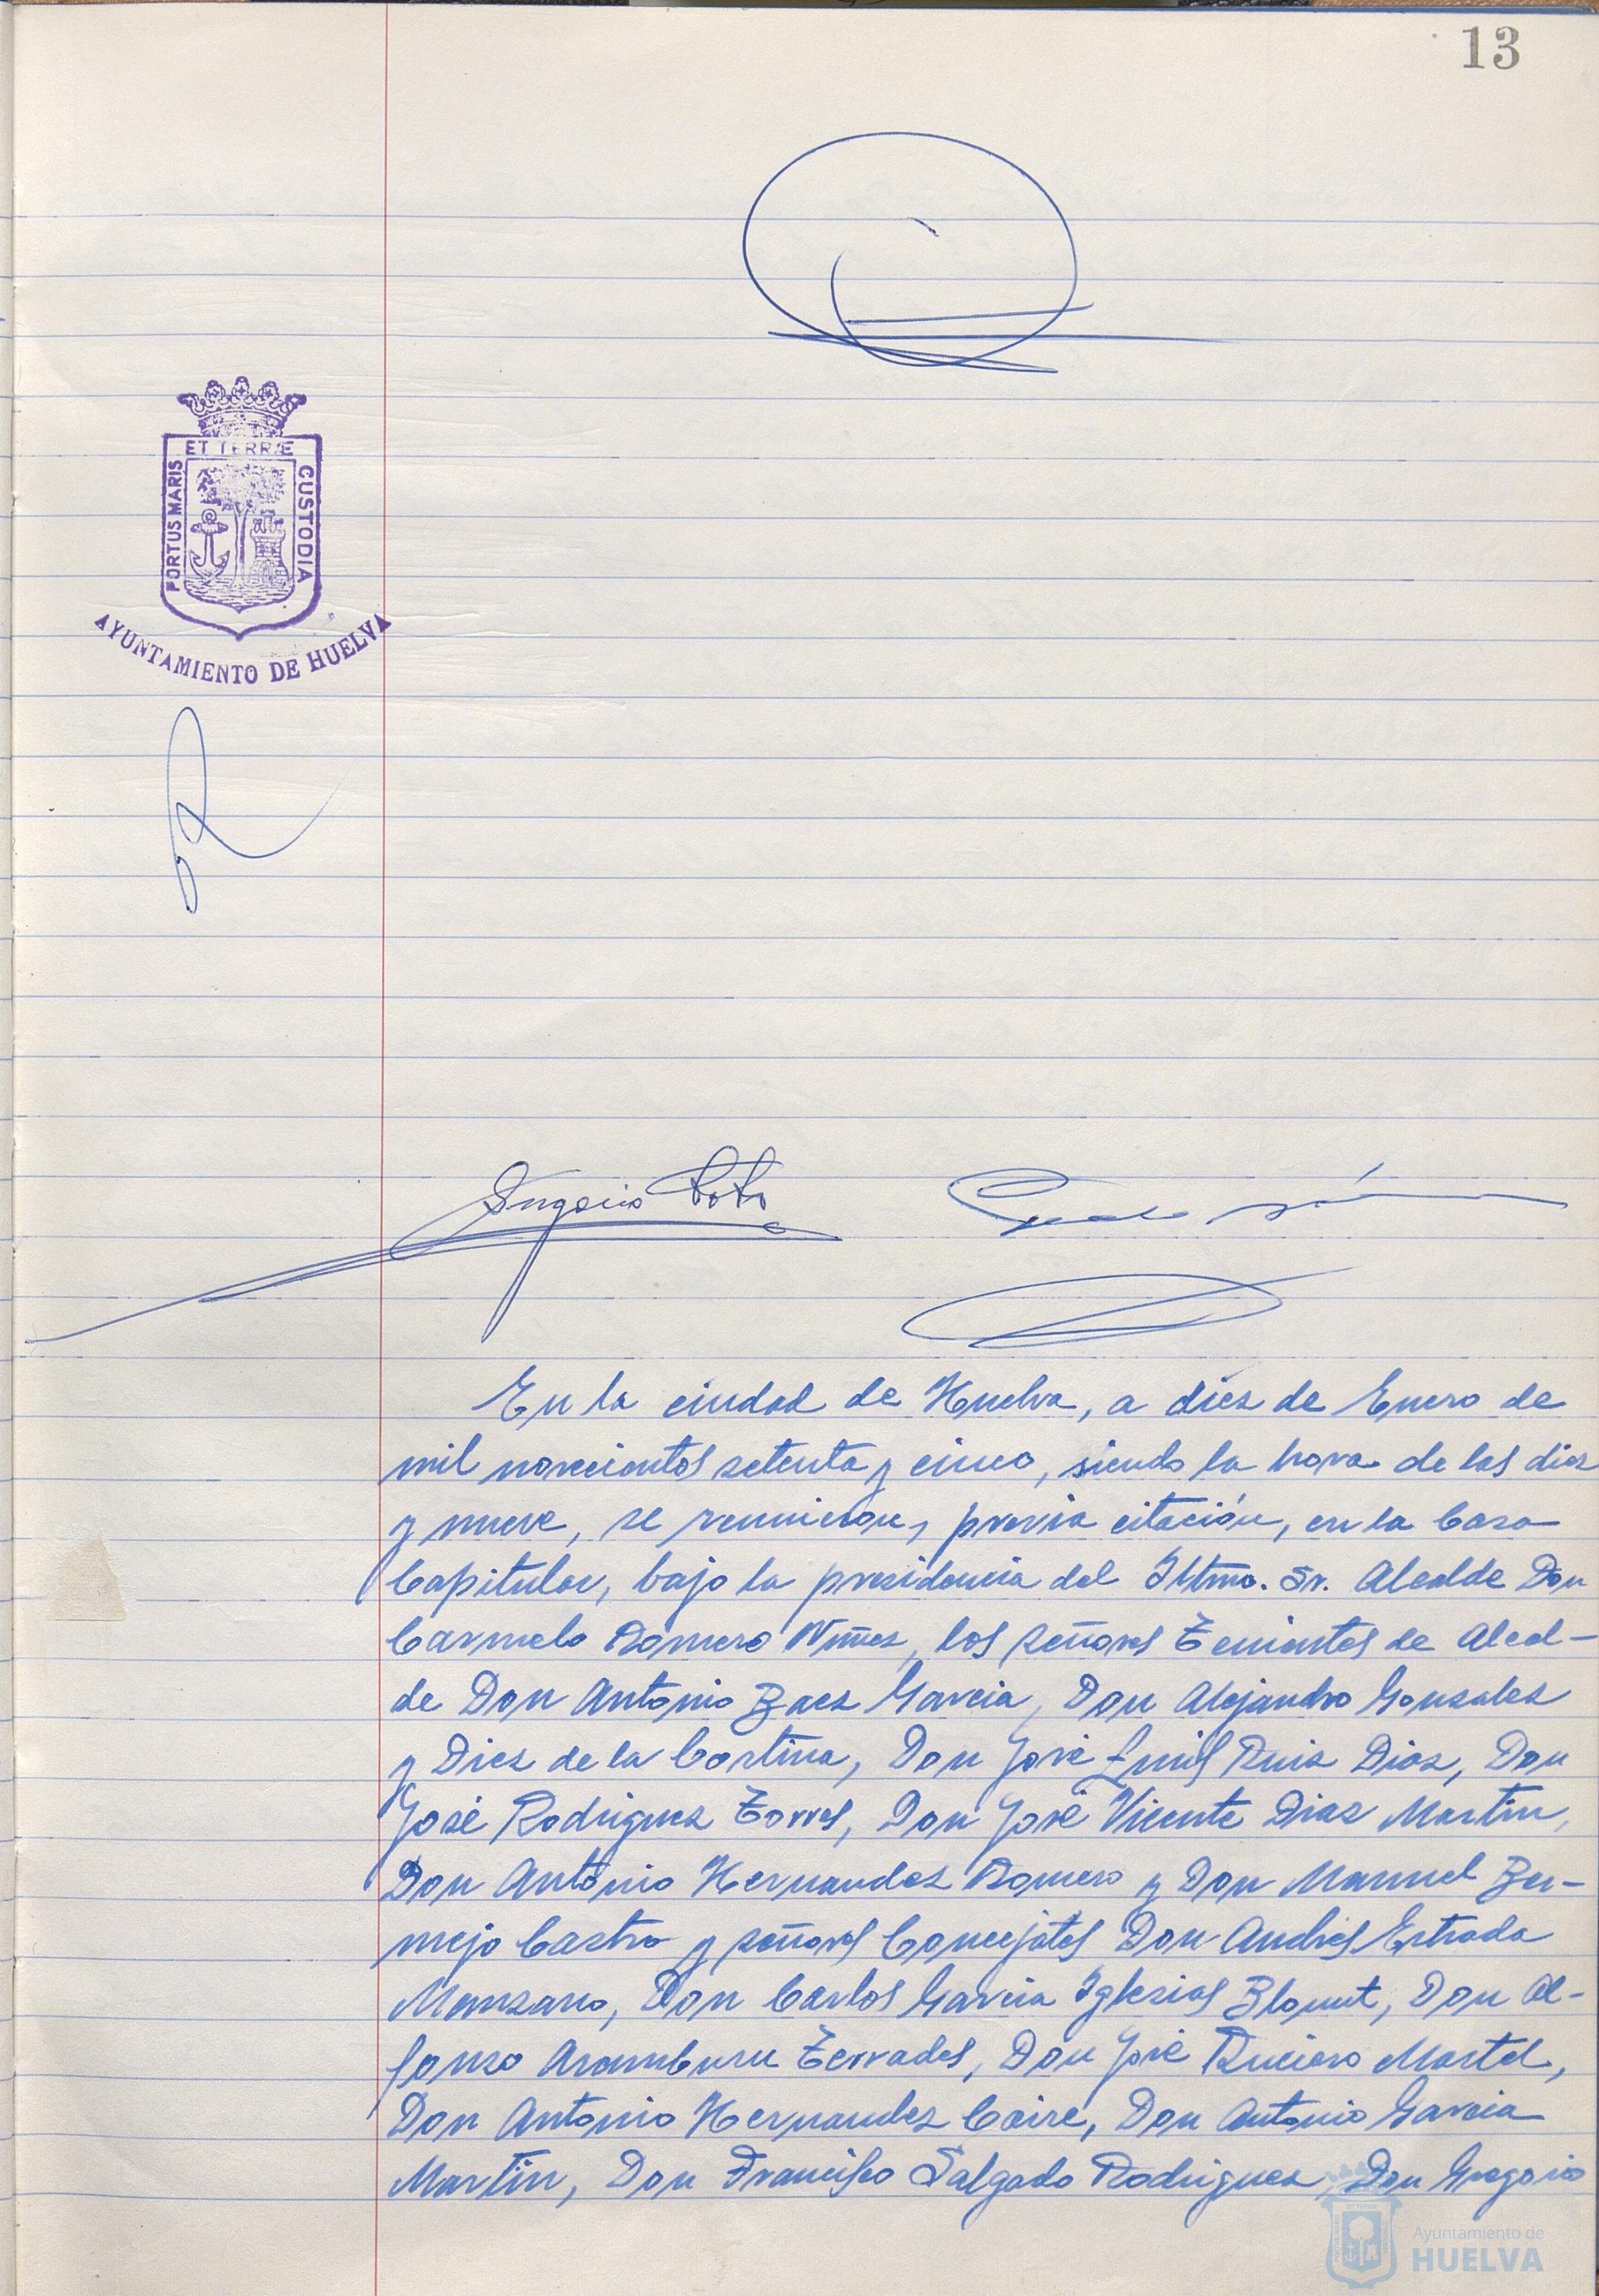 13
ET TERRÆ
PORTUS MARIS
CUSTODIA
AYUNTAMIENTO DE HUELVA
En la ciudad de Huelva, a diez de Enero de
mil novecientos setenta y cinco, siendo la hora de las diez
y nueve, se reunieron, previa citación, en la Casa
Capitular, bajo la presidencia del Iltmo. Sr. Alcalde Don
Carmelo Romero Núñez, los señores Tenientes de Alcal-
de Don Antonio Baez Garcia, Don Alejandro Gonzalez
y Diez de la Cortina, Don José Luis Ruiz Diaz, Don
José Rodriguez Torres, Don José Vicente Diaz Martin,
Don Antonio Hernandez Romero y Don Manuel Ber-
mejo Castro y señores Concejales Don Andrés Estrada
Manzano, Don Carlos Garcia Iglesias Blount, Don Al-
fonso Aramburu Terrades, Don José Ruciero Martel,
Don Antonio Hernandez Caire, Don Antonio Garcia
Martin, Don Francisco Salgado Rodriguez, Don Gregorio
Ayuntamiento de
HUELVA